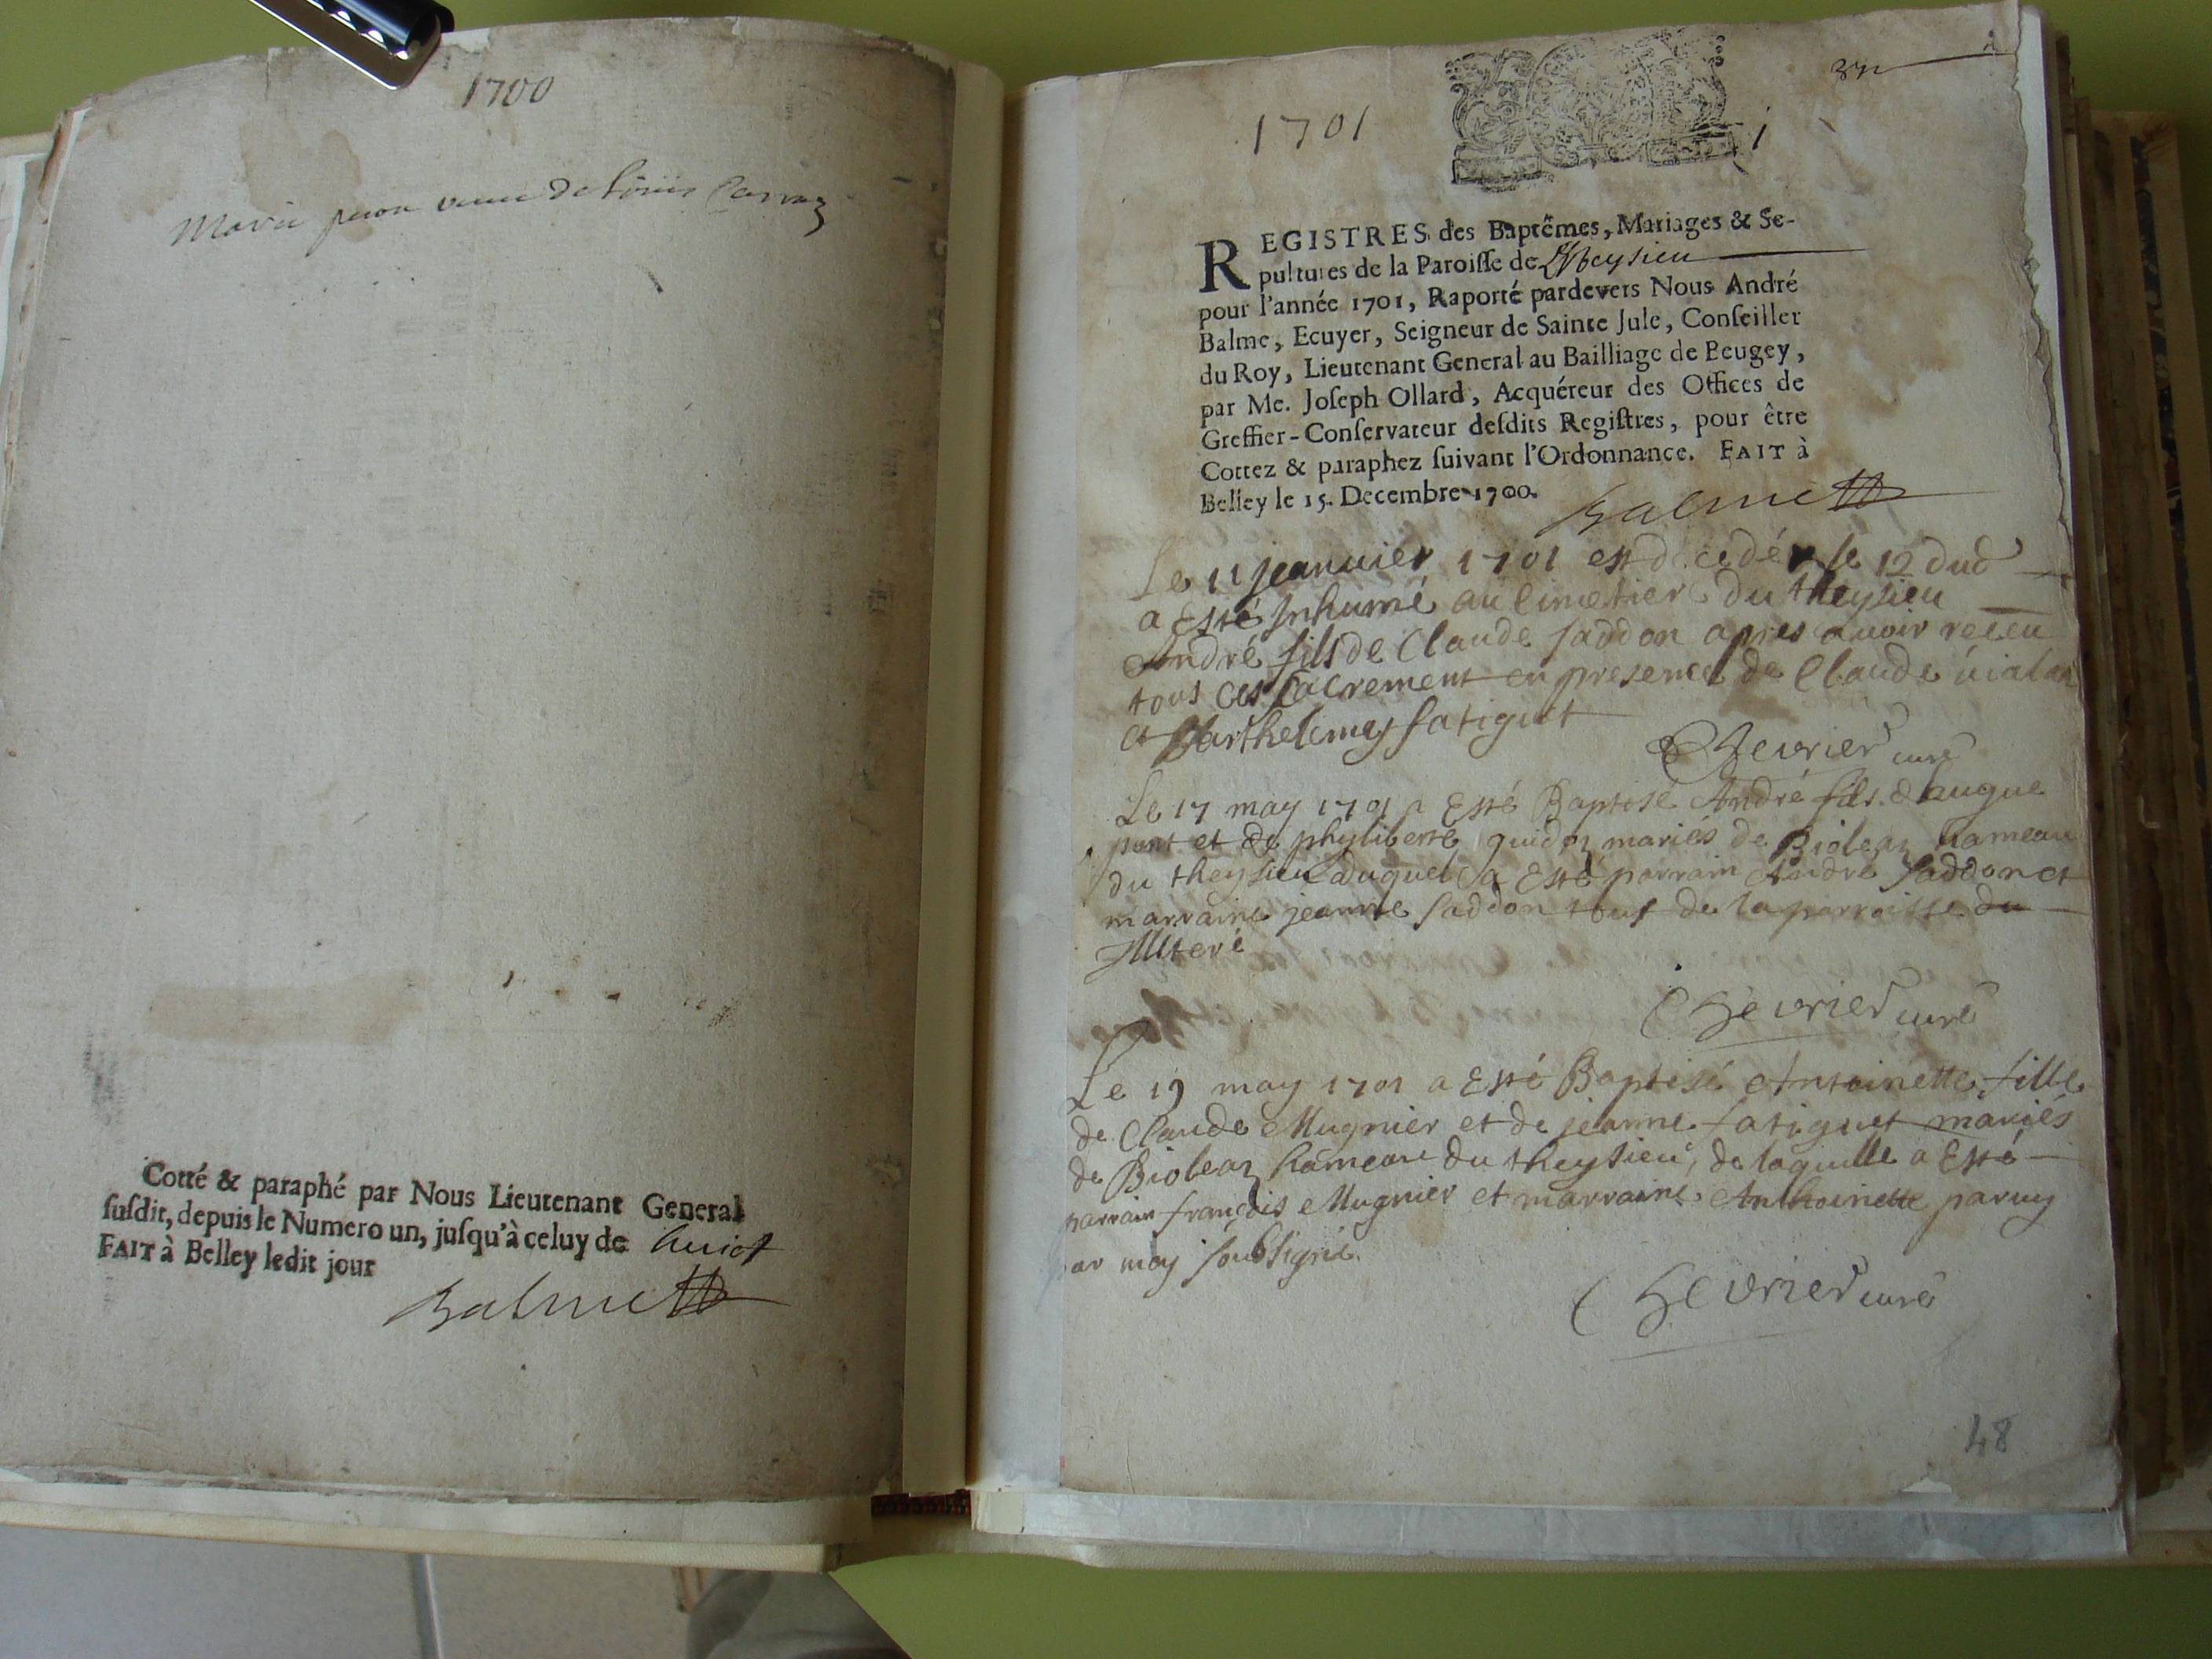 1700
Marie veuve de Carraz
Cotté & paraphé par Nous Lieutenant General
susdit, depuis le Numero un, jusqu'à celuy de huict
FAIT à Belley ledit jour
Balme
1701
REGISTRES des Baptêmes, Mariages & Se-
pultures de la Paroisse de Theysieu
pour l'année 1701, Raporté pardevers Nous André
Balme, Ecuyer, Seigneur de Sainte Jule, Conseiller
du Roy, Lieutenant General au Bailliage de Beugey,
par Me. Joseph Ollard, Acquéreur des Offices de
Greffier-Conservateur desdits Registres, pour être
Cottez & paraphez suivant l'Ordonnance. FAIT à
Belley le 15. Decembre 1700.
Balme
Le 11 jeanuier 1701 est decedé le 12 dud
a Esté Inhumé au Cimetier du theysieu
André fils de Claude saddon apres auoir receu
tous ces sacrement en presence de Claude
et Barthelemy fatiguet
Chevrier curé
Le 17 may 1701 a Esté Baptisé André fils d hugue
et de phyliberte guidoz mariés de Bioleaz hameau
du theysieu duquel a Esté parrain André saddon et
marraine jeanne saddon tous de la parroisse du
Illiteré
Chevrier curé
Le 19 may 1701 a Esté Baptisé Antoinette fille
de Claude Mugnier et de jeanne fatiguet mariés
de Bioleaz hameau du theysieu, de laquelle a Esté
parrain françois Mugnier et marraine Anthoinette paruy
par moy soubsigné
Chevrier curé
48